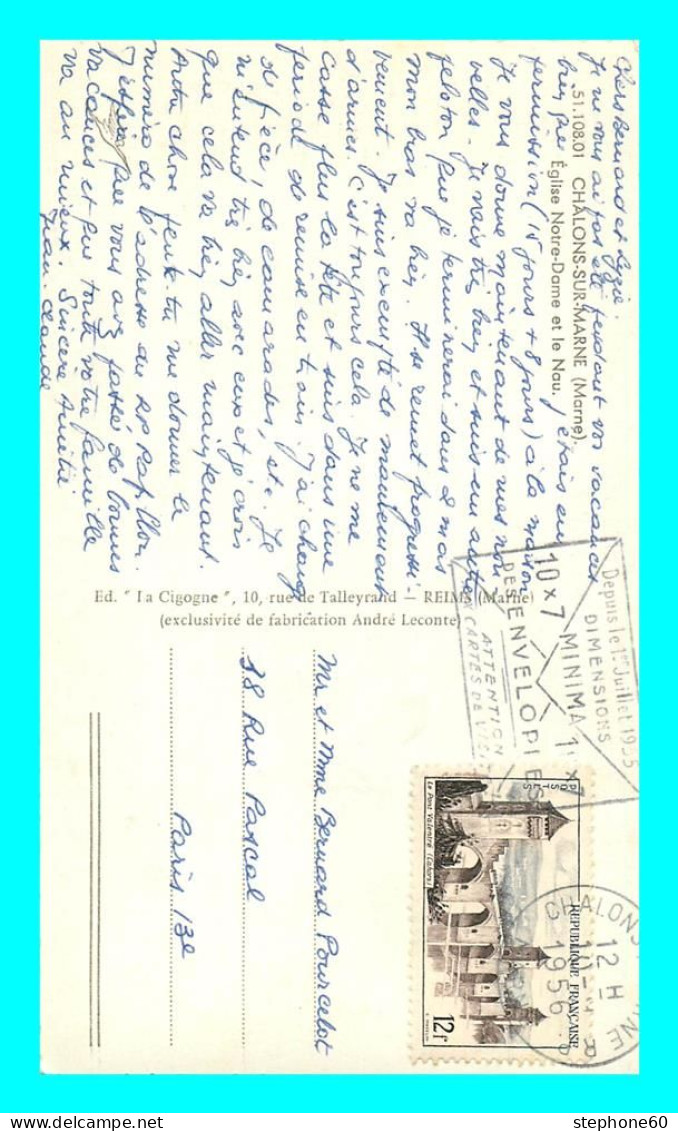 51.108.01 CHÂLONS-SUR-MARNE (Marne).
Église Notre-Dame et le Nau.
Chers Bernard et
Je ne vous ai pas été pendant vos vacances
bien que j'étais en
permission (15 jours + 8 jours) à la maison
Je vous donne maintenant de mes nou
velles. Je vais très bien et suis un autre
peloton que je terminerai dans 2 mois
mon bras va bien. Il se remet progressi-
vement. Je suis exempté de maniement
d'armes. C'est toujours cela. Je ne me
casse plus la tête et suis dans une
période de remise en train. J'ai changé
de pièce, de camarades, etc. Je
m'entend très bien avec eux et je crois
que cela va bien aller maintenant.
Autre chose peux-tu me donner le
numéro de l'adresse du RP Papillon.
J'espère que vous avez passé de bonnes
vacances et que toute votre famille
va au mieux. Sincère Amitié
Jean-Claude
Ed. " La Cigogne ", 10, rue de Talleyrand — REIMS (Marne)
(exclusivité de fabrication André Leconte)
Mr et Mme Bernard Pourcelot
18 Rue Pascal
Paris 13e
Depuis le 1er Juillet 1955
DIMENSIONS
MINIMA
10 x 7
DES ENVELOPPES
ATTENTION
CARTES DE VISITE
POSTES
REPUBLIQUE FRANÇAISE
Le Pont Valentré (Cahors)
12f
CHALONS
12 H
1956
MARNE
stephone60@delcampe.net
stephone60